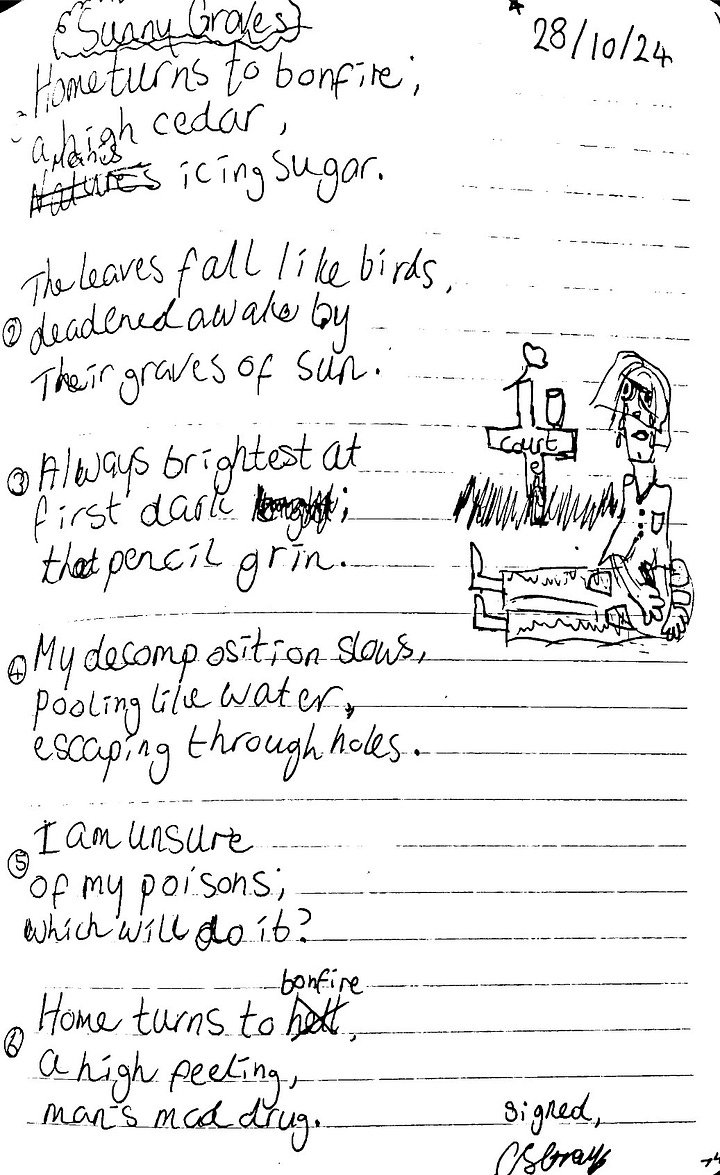 Sunny Graves
28/10/24
Home turns to bonfire;
a high cedar,
Man's
Nature's icing sugar.
The leaves fall like birds,
② deadened awake by
Their graves of sun.
③ Always brightest at
first dark ;
that pencil grin.
court
e
④ My decomposition slows,
pooling like water,
escaping through holes.
⑤ I am unsure
of my poisons;
which will do it?
bonfire
⑥ Home turns to hell,
a high peeling,
man's mad drug.
signed,